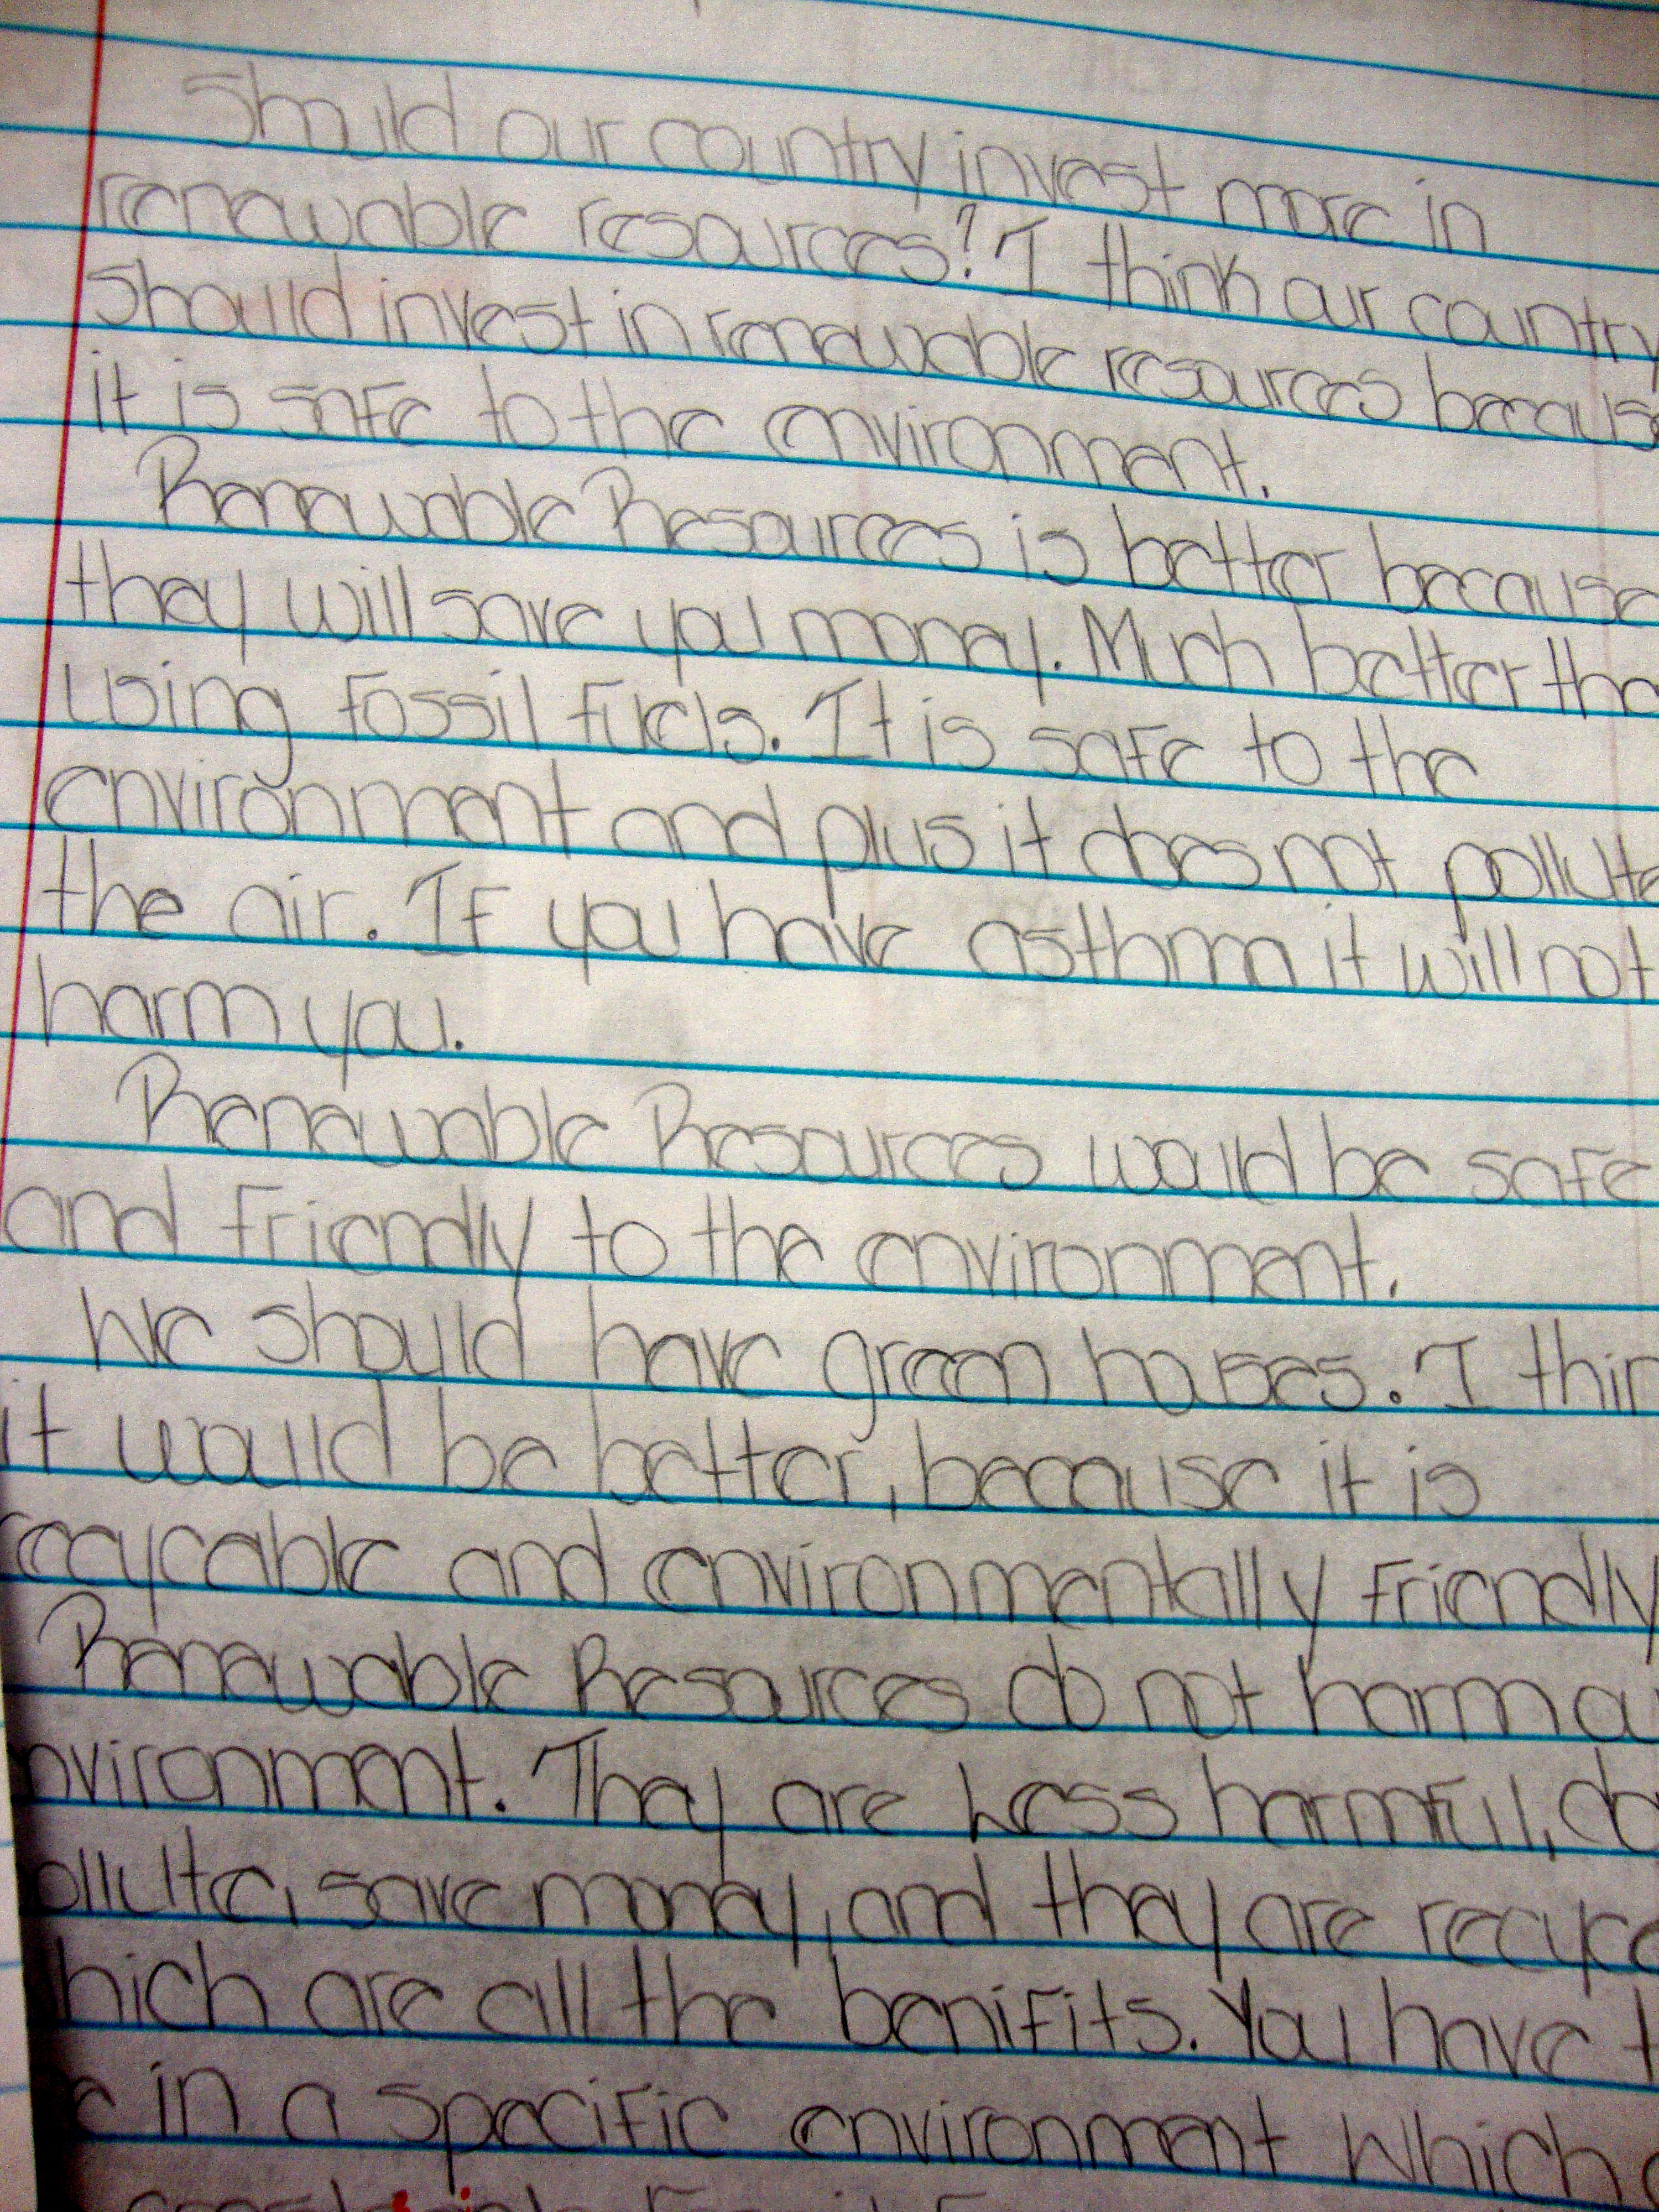 Should our country invest more in
renewable resources? I think our country
should invest in renewable resources because
it is safe to the environment.
Renewable Resources is better because
they will save you money. Much better tha
using Fossil Fuels. It is safe to the
environment and plus it does not pollute
the air. If you have asthma it will not
harm you.
Renewable Resources would be safe
and friendly to the environment.
We should have green houses. I thin
it would be better, because it is
recycable and environmentally friendly
Renewable Resources do not harm ou
nvironment. They are Less harmful, do
ollute, save money, and they are recyca
hich are all the benifits. You have t
e in a specific environment which